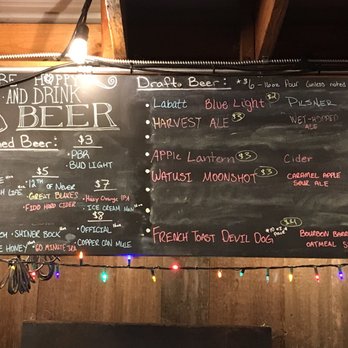 BE HOPPY
AND DRINK
BEER
Beer:
$3
• PBR
• BUD LIGHT
$5
LIFE
• 12TH OF NEVER
• GREAT BLAKES
• FIDO HARD CIDER
$7
• Hazy Orange IPA
• ICE CREAM MAN
$8
• SHINER BOCK
• OFFICIAL
HONEY
• 60 MINUTE IPA
• COPPER CAN MULE
Draft Beer: $6 - 16oz Pour Unless noted
• Labatt Blue Light $4 PILSNER
• HARVEST ALE $3 WET-HOPPED
ALE
• APPLE Lantern $3 Cider
• WATUSI MOONSHOT $3 CARAMEL APPLE
SOUR ALE
• FRENCH TOAST DEVIL DOG BOURBON
OATMEAL